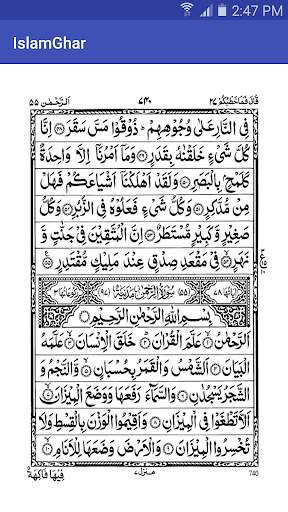 2:47 PM
IslamGhar
قَالَ فَمَا خَطْبُكُمْ ۲۷ ۷۴۰ اَلرَّحْمٰن ۵۵
فِى النَّارِ عَلٰى وُجُوْهِهِمْ ؕ ذُوْقُوْا مَسَّ سَقَرَ ﴿۴۸﴾ اِنَّا
كُلَّ شَىْءٍ خَلَقْنٰهُ بِقَدَرٍ ﴿۴۹﴾ وَمَاۤ اَمْرُنَاۤ اِلَّا وَاحِدَةٌ
كَلَمْحٍۭ بِالْبَصَرِ ﴿۵۰﴾ وَلَقَدْ اَهْلَكْنَاۤ اَشْيَاعَكُمْ فَهَلْ
مِنْ مُّدَّكِرٍ ﴿۵۱﴾ وَكُلُّ شَىْءٍ فَعَلُوْهُ فِى الزُّبُرِ ﴿۵۲﴾ وَكُلُّ
صَغِيْرٍ وَّكَبِيْرٍ مُّسْتَطَرٌ ﴿۵۳﴾ اِنَّ الْمُتَّقِيْنَ فِىْ جَنّٰتٍ وَّ
نَهَرٍ ﴿۵۴﴾ فِىْ مَقْعَدِ صِدْقٍ عِنْدَ مَلِيْكٍ مُّقْتَدِرٍ ﴿۵۵﴾
اٰيَاتُهَا ۷۸ (۵۵) سُوْرَةُ الرَّحْمٰنِ مَدَنِيَّةٌ (۹۷) رُكُوْعَاتُهَا ۳
بِسْمِ اللّٰهِ الرَّحْمٰنِ الرَّحِيْمِ
اَلرَّحْمٰنُ ﴿۱﴾ عَلَّمَ الْقُرْاٰنَ ﴿۲﴾ خَلَقَ الْاِنْسَانَ ﴿۳﴾ عَلَّمَهُ
الْبَيَانَ ﴿۴﴾ اَلشَّمْسُ وَالْقَمَرُ بِحُسْبَانٍ ﴿۵﴾ وَّالنَّجْمُ وَ
الشَّجَرُ يَسْجُدٰنِ ﴿۶﴾ وَالسَّمَآءَ رَفَعَهَا وَوَضَعَ الْمِيْزَانَ ﴿۷﴾
اَلَّا تَطْغَوْا فِى الْمِيْزَانِ ﴿۸﴾ وَاَقِيْمُوا الْوَزْنَ بِالْقِسْطِ وَلَا
تُخْسِرُوا الْمِيْزَانَ ﴿۹﴾ وَالْاَرْضَ وَضَعَهَا لِلْاَنَامِ ﴿۱۰﴾
فِيْهَا فَاكِهَةٌ
منزل ۷
740